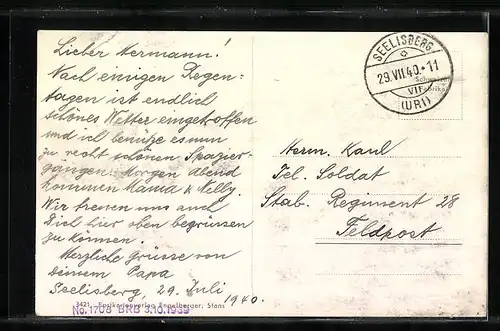 Lieber Hermann!
Nach einigen Regen-
tagen ist endlich
schönes Wetter eingetroffen
und ich benütze es nun
zu recht schönen Spazier-
gängen. Morgen Abend
kommen Mama & Nelly.
Wir freuen uns auch
Dich hier oben begrüssen
zu können.
Herzliche Grüsse von
deinem Papa
Seelisberg, 29. Juli
1940.
3421 Postkartenverlag Engelberger, Stans
No. 1708 BRB 3.10.1939
SEELISBERG
29.VII.40.-11
VI
(URI)
Schweizer
Fabrikat
Herm. Kaul
Tel. Soldat
Stab. Regiment 28
Feldpost